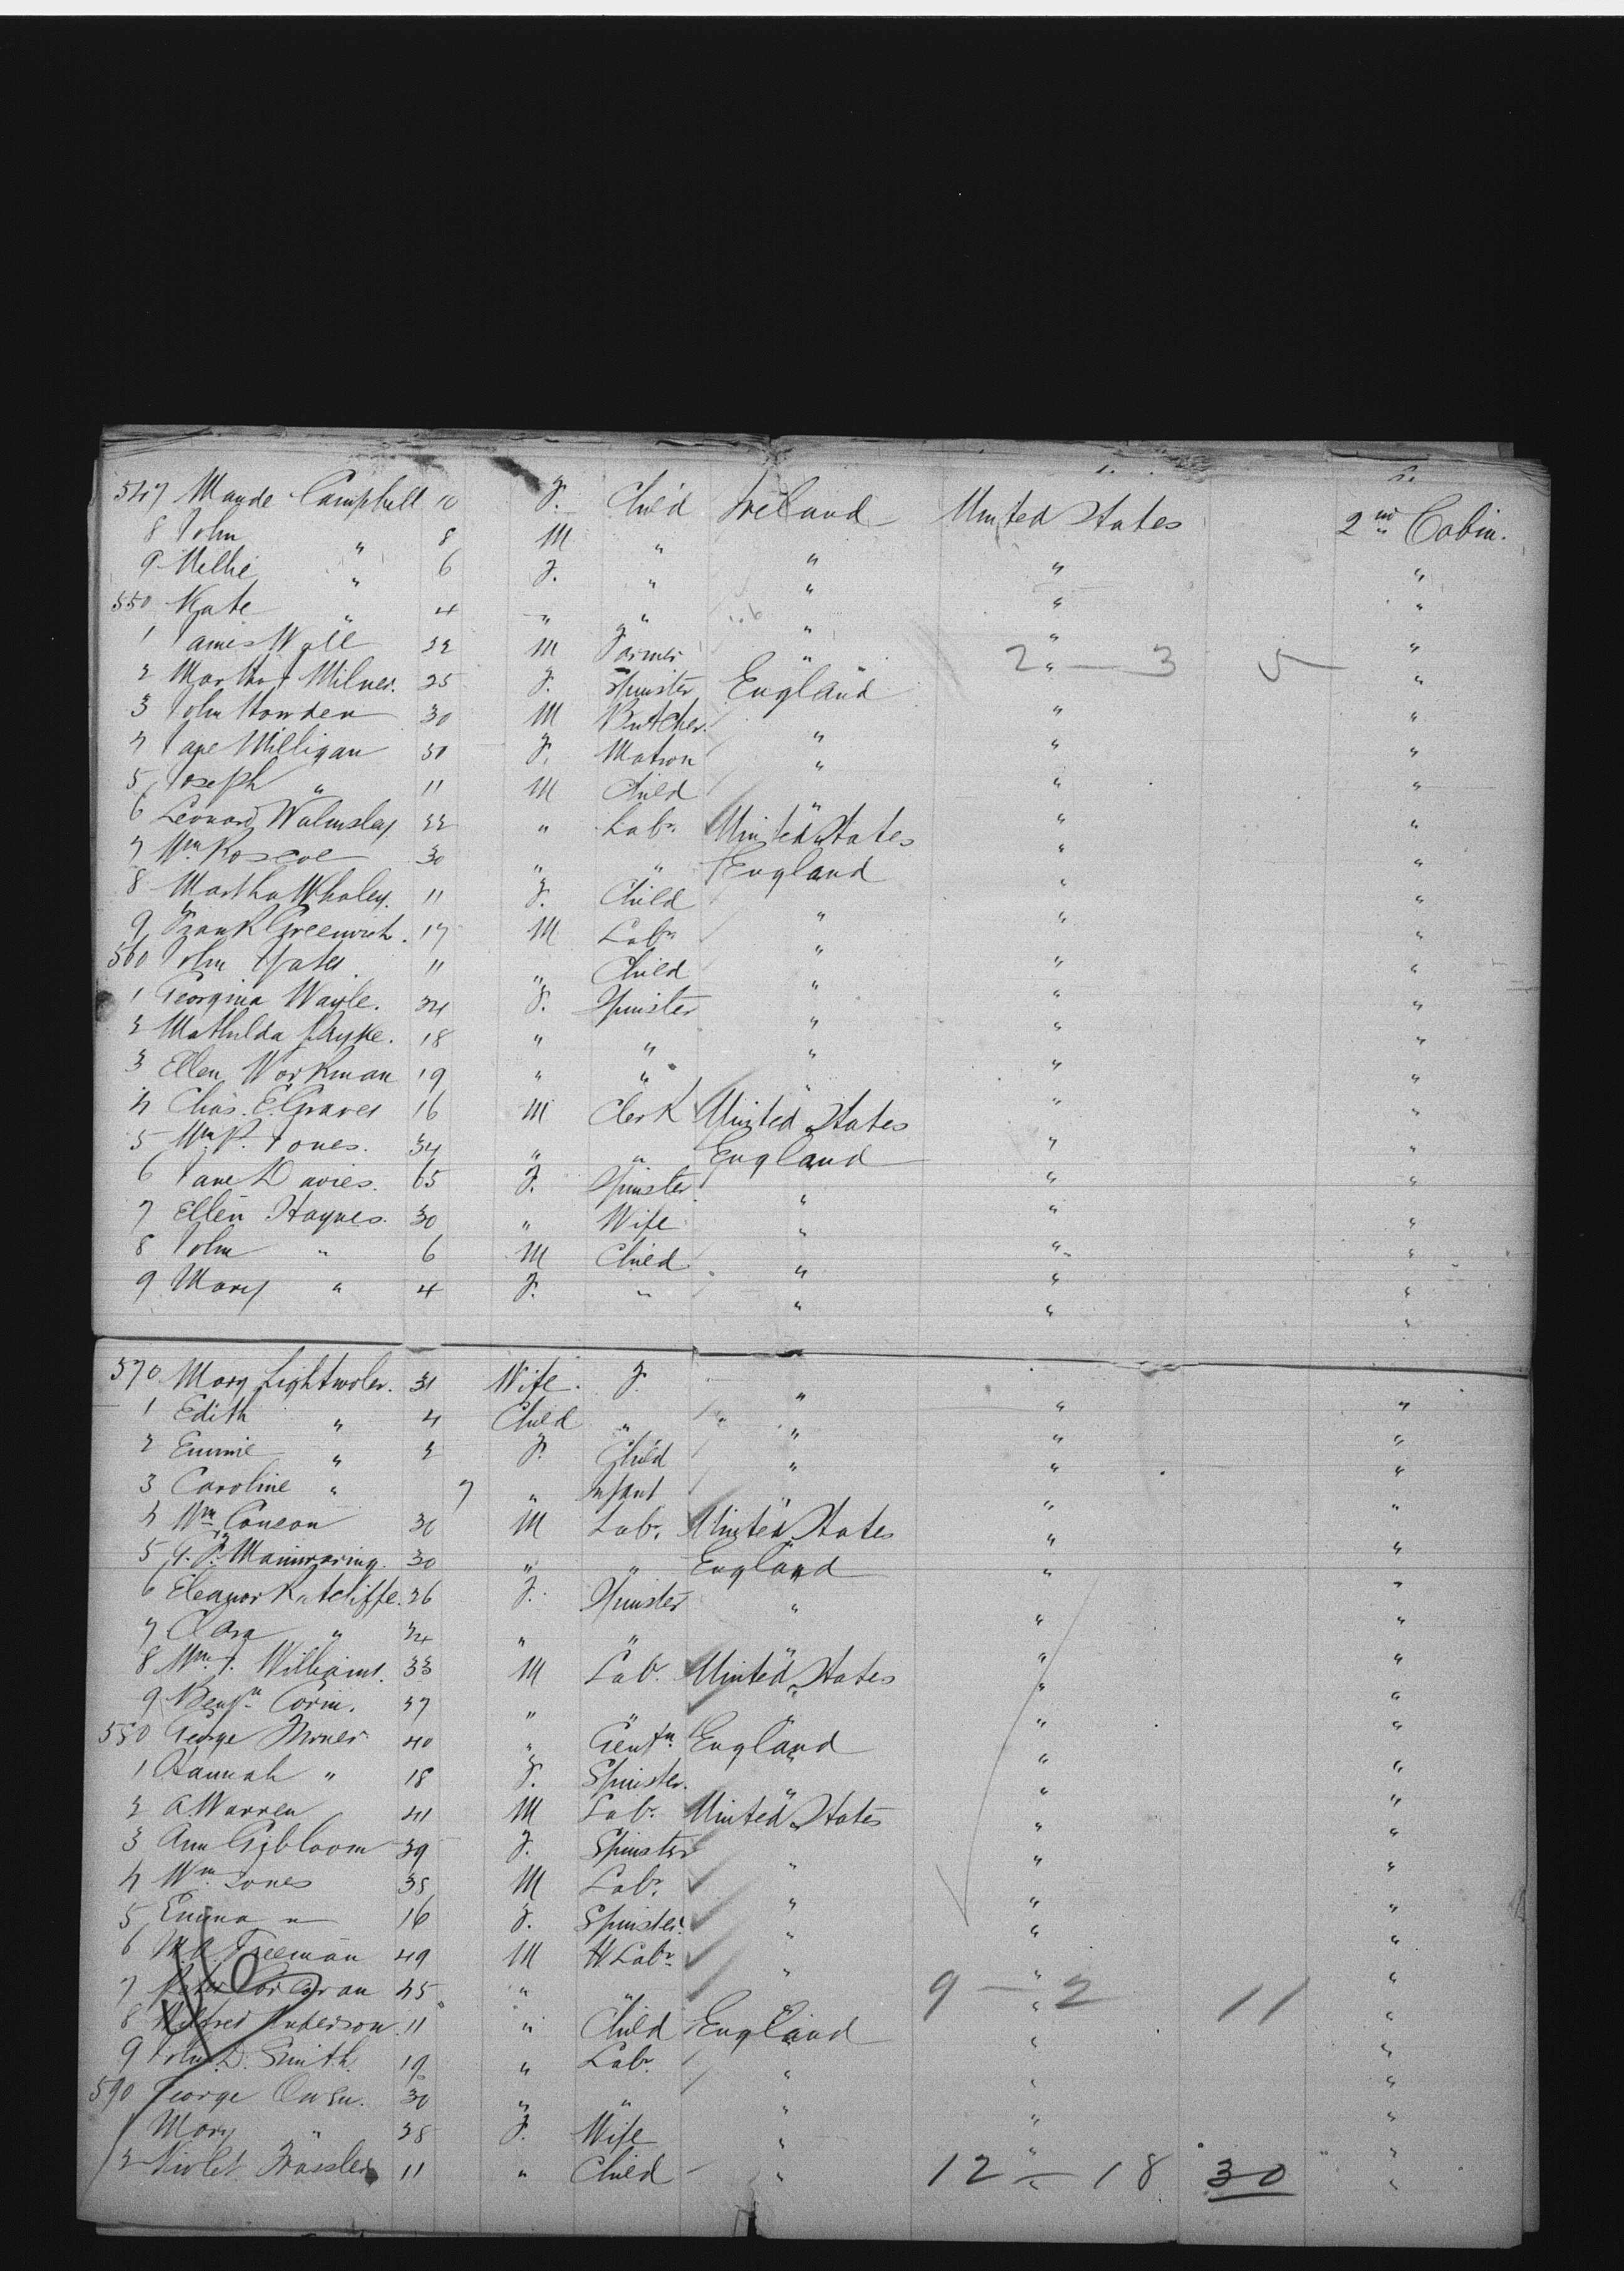 547 Maude Campbell 10 F. Child Ireland United States 2nd Cabin.
8 John " 8 M " " " "
9 Nellie " 6 F. " " " "
550 Kate " 4 " " " " "
1 James Wall 22 M Farmer " " "
2 Martha Milner. 25 F. Spinster England " "
2 — 3 5
3 John Howden 30 M Butcher. " " "
4 Jane Milligan 30 F. Matron " " "
5 Joseph " 11 M Child " " "
6 Leonard Walmsley 22 " Labr. United States " "
7 Wm. Roscoe 30 " " England " "
8 Martha Whaley. 11 F. Child " " "
9 Frank Greenwich. 17 M Labr " " "
560 John Yates. 11 " Child " " "
1 Georgina Wayle. 24 F. Spinster " " "
2 Mathilda 18 " " " " "
3 Ellen Workman 19 " " " " "
4 Chas. E. Graves 16 M Clerk United States " "
5 Wm. P. Jones. 34 " " England " "
6 Jane Davies. 65 F. Spinster " " "
7 Ellen Haynes. 30 " Wife " " "
8 John " 6 M Child " " "
9 Mary " 4 F. " " " "
570 Mary Lightwoler. 31 Wife. F. " " "
1 Edith " 4 Child " " " "
2 Emmie " 2 F. Child " " "
3 Caroline " 7 " Infant " " "
4 Wm. 30 M Labr. United States " "
5 Mainwaring. 30 " " England " "
6 Eleanor Ratcliffe. 26 F. Spinster " " "
7 Clara " 24 " " " " "
8 Wm. J. Williams. 33 M Labr. United States " "
9 Benjn. Corin. 37 " " " " "
580 George 40 " Gentn. England " "
1 Hannah " 18 F. Spinster. " " "
2 A Warren 41 M Labr. United States " "
3 Ann 39 F. Spinster " " "
4 Wm. Jones 38 M Labr. " " "
5 Emma " 16 F. Spinster. " " "
6 Freeman 49 M Labr. " " "
7 Peter Corcoran 45 " " " " "
9 — 2 11
8 Wilfred Anderson. 11 " Child England " "
9 John D. Smith. 19 " Labr. " " "
590 George Owen. 30 " " " " "
1 Mary " 28 F. Wife " " "
2 Violet 11 " Child " " "
12 — 18 30